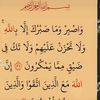 بسم الله الرحمن الرحيم
وَاصْبِرْ وَمَا صَبْرُكَ إِلَّا بِاللَّهِ ۚ
وَلَا تَحْزَنْ عَلَيْهِمْ وَلَا تَكُ فِي
ضَيْقٍ مِمَّا يَمْكُرُونَ ﴿١٢٧﴾ إِنَّ
اللَّهَ مَعَ الَّذِينَ اتَّقَوْا وَالَّذِينَ